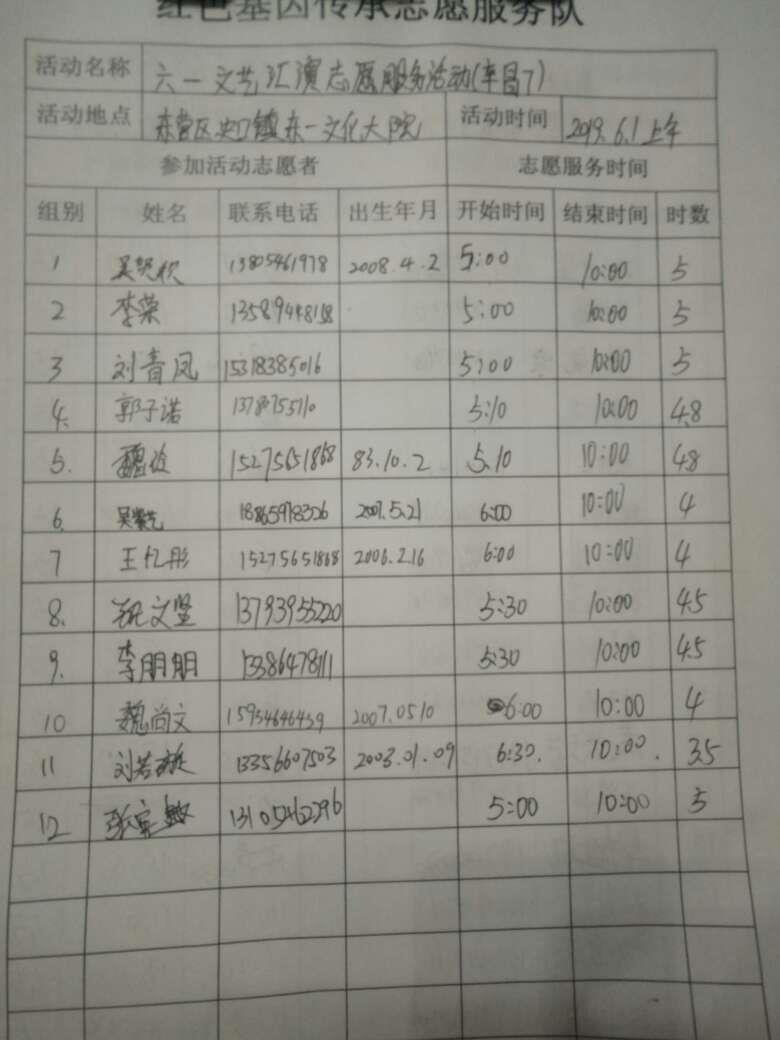 红色基因传承志愿服务队
活动名称 六一文艺汇演志愿服务活动
活动地点 东营区史口镇东一文化大院 活动时间 2019.6.1上午
参加活动志愿者 志愿服务时间
组别 姓名 联系电话 出生年月 开始时间 结束时间 时数
1 13805461978 2008.4.2 5:00 10:00 5
2 李荣 5:00 10:00 5
3 刘青凤 15318385016 5:00 10:00 5
4. 郭子诺 5:10 10:00 4.8
5. 15275651868 83.10.2 5.10 10:00 4.8
6. 18865978326 2007.5.21 6:00 10:00 4
7 王忆彤 15275651868 2006.2.16 6:00 10:00 4
8. 13793955220 5:30 10:00 4.5
9. 李朋朋 13386478111 5:30 10:00 4.5
10 魏尚文 15954646459 2007.0510 6:00 10:00 4
11 13356607503 2003.01.09 6:30. 10:00. 3.5
12 13105462296 5:00 10:00 5